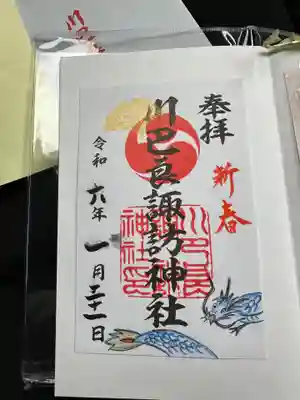 奉拝
新春
川巴良諏訪神社
令和六年一月二十一日